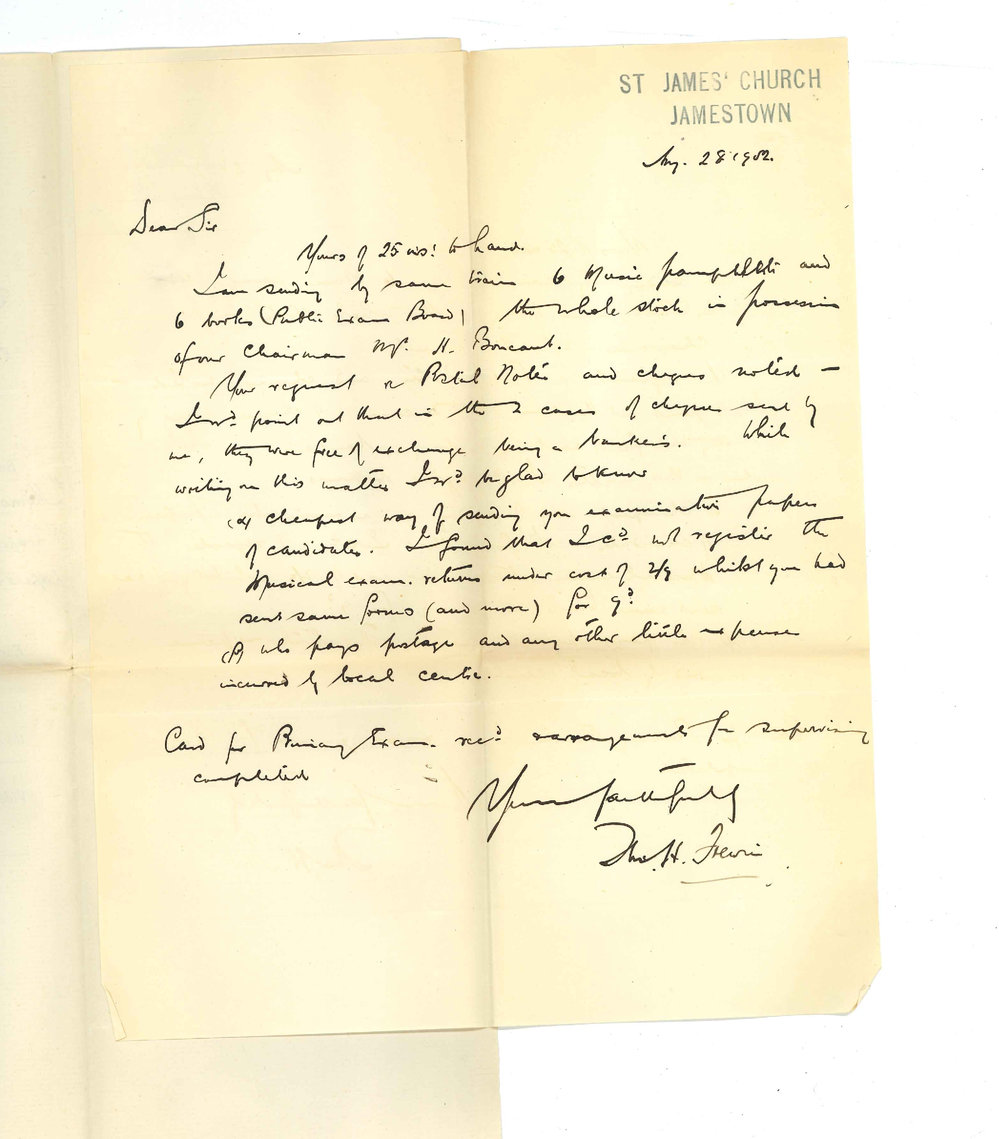 ST JAMES' CHURCH
JAMESTOWN
Aug. 28 1902.
Dear Sir
Yours of 25 inst to hand.
I am sending by same train 6 Music pamphlets and
6 books (Public Exam Board) the whole stock in possession
of our Chairman Mr. H. Boucaut.
Your request re Postal Notes and cheques noted —
I wd point out that in the 2 cases of cheques sent by
me, they were free of exchange being a banker's. While
writing on this matter I wd be glad to know
(α) cheapest way of sending you examination papers
of candidates. I found that I cd not register the
Musical exam. returns under cost of 2/9 whilst you had
sent same forms (and more) for 9d
(β) who pays postage and any other little expenses
incurred by local centre.
Card for Primary Exam. recd arrangements for supervising
completed
Yours faithfully
Thos. H. Frewin